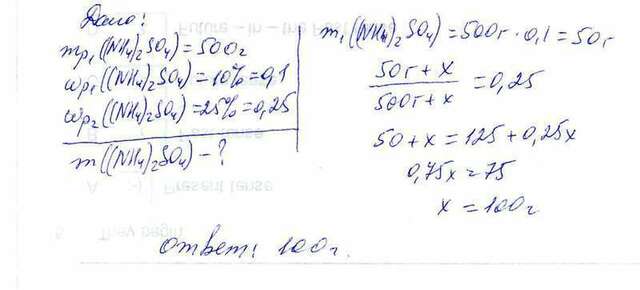 Дано:
mp₁((NH₄)₂SO₄)=500г
wp₁((NH₄)₂SO₄)=10%=0,1
wp₂((NH₄)₂SO₄)=25%=0,25
m((NH₄)₂SO₄)-?
m₁((NH₄)₂SO₄)=500г·0,1=50г
50г+x
500г+x
=0,25
50+x=125+0,25x
0,75x=75
x=100г
Ответ: 100г.
Future - in - the Past
Present tense
They begin